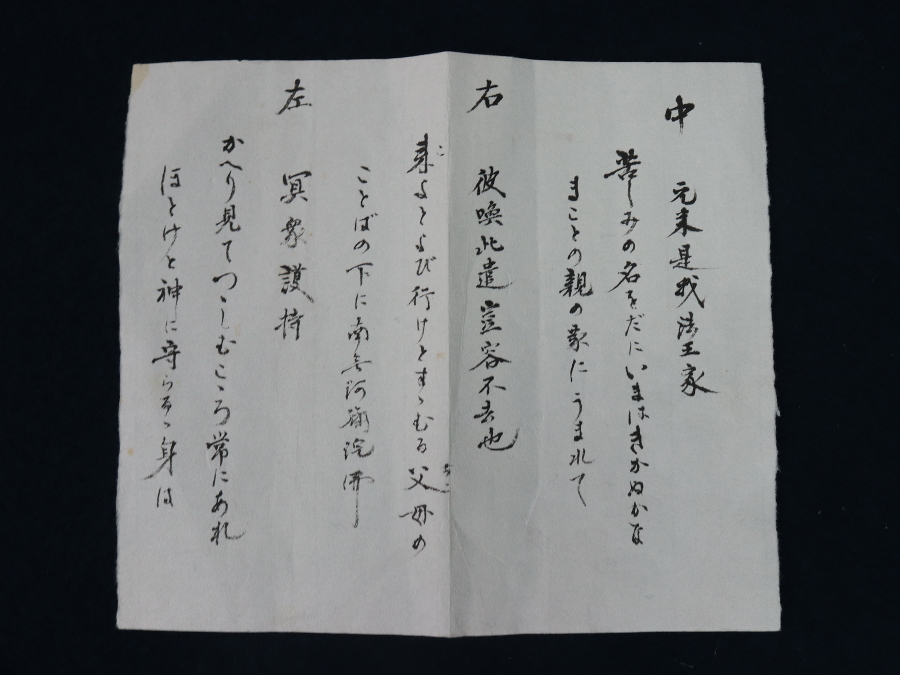 中
元来是我法王家
苦しみの名をだにいまはきかぬかな
まことの親の家にうまれて
右
彼喚此遣豈容不去也
来よとよび行けとすゝむる父母の
ことばの下に南無阿弥陀佛
左
冥衆護持
かへり見てつゝしむこゝろ常にあれ
ほとけと神に守らるゝ身は